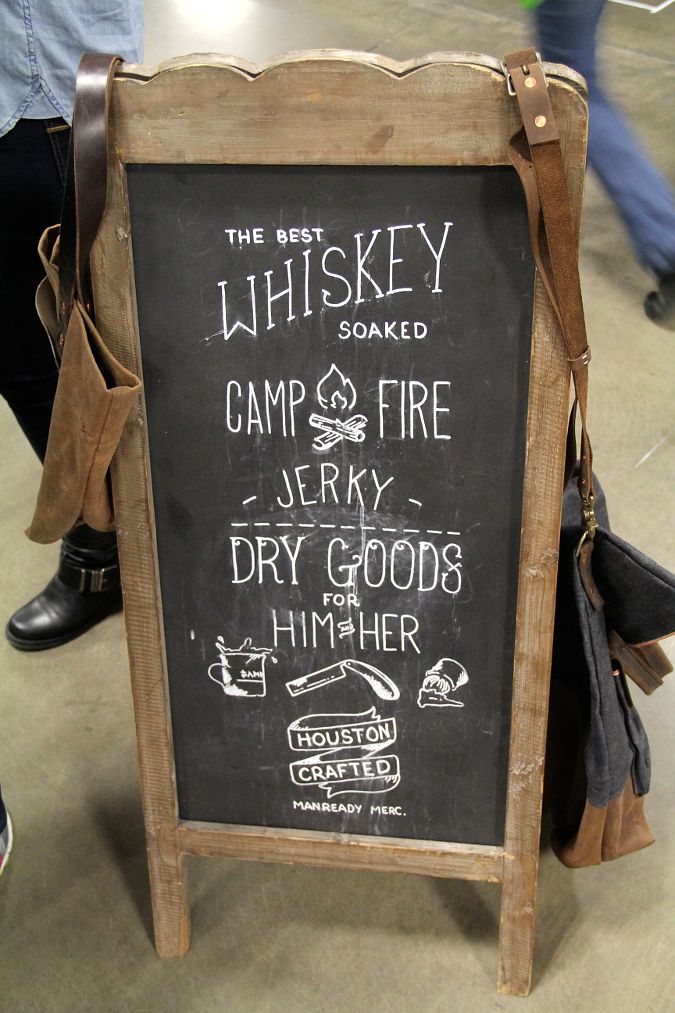 THE BEST
WHISKEY
SOAKED
CAMP FIRE
- JERKY -
DRY GOODS
FOR
HIM AND HER
HOUSTON
CRAFTED
MANREADY MERC.